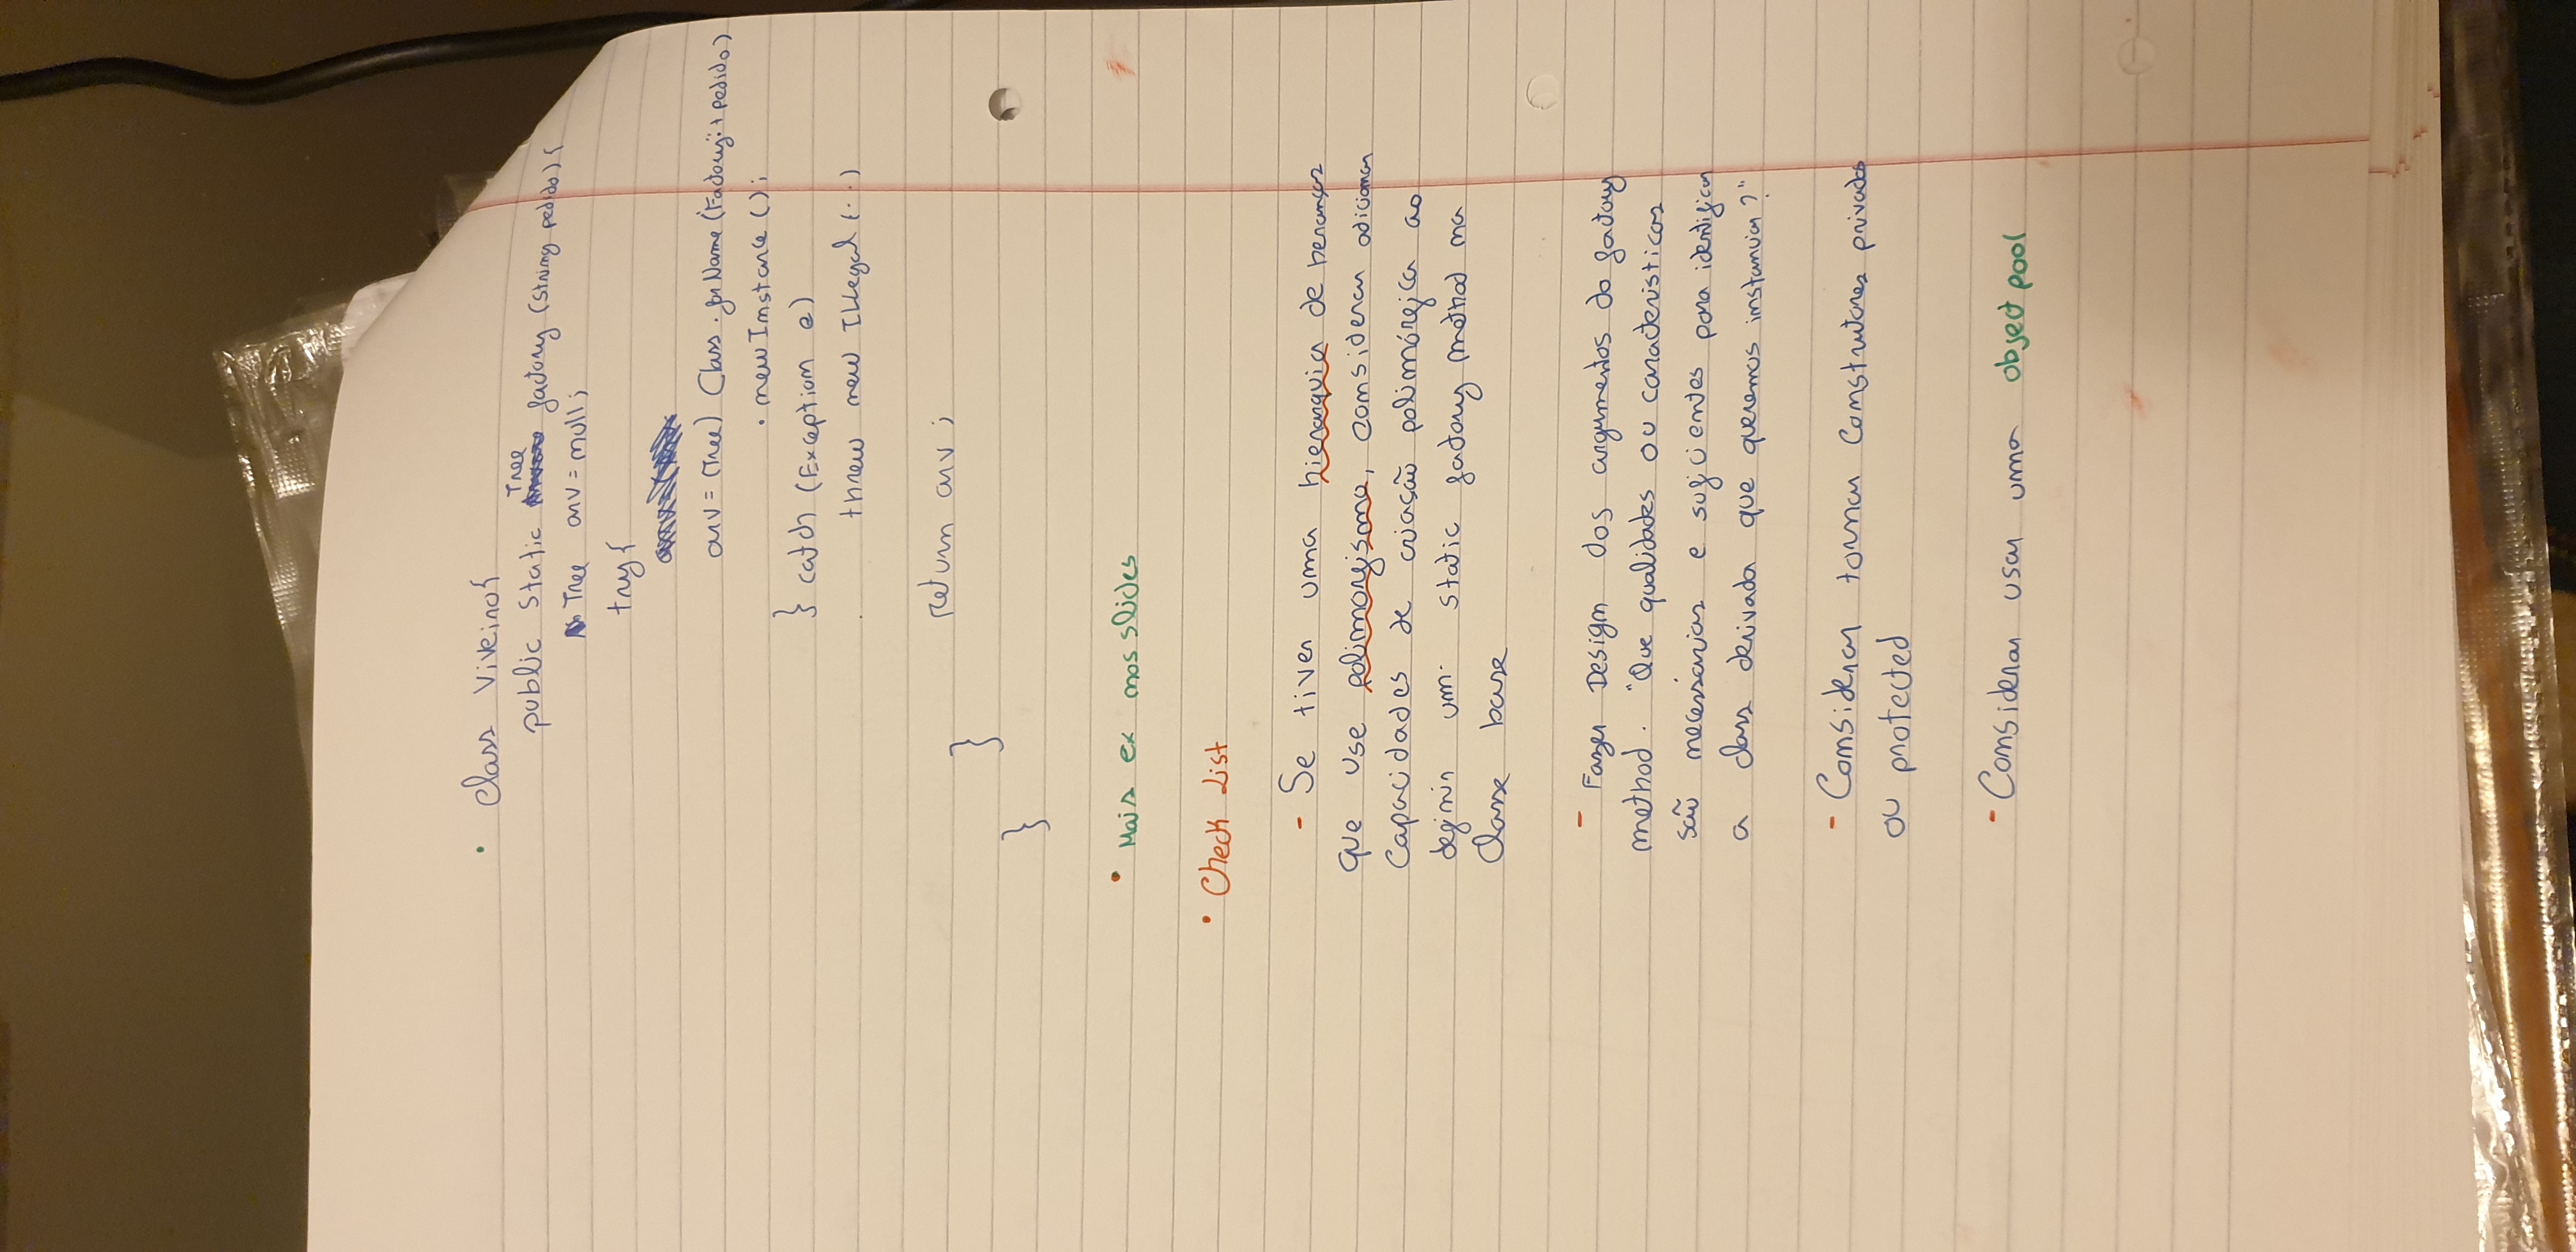 • Class Viveiro{
public static Tree factory (String pedido) {
Tree arv = null;
try {
arv = (Tree) Class.forName ("Factory." + pedido)
. newInstance ();
} catch (Exception e)
threw new Illegal (...)
return arv ;
}
}
• Mais ex nos slides
• Check List
- Se tiver uma hierarquia de heranças
que use polimorfismo, considerar adicionar
capacidades de criação polimórfica ao
definir um static factory method na
classe base
- Fazer Design dos argumentos do factory
method. "Que qualidades ou caracteristicas
são necessárias e suficientes para identificar
a class derivada que queremos instanciar?"
- Considerar tornar Construtores privados
ou protected
- Considerar usar uma object pool